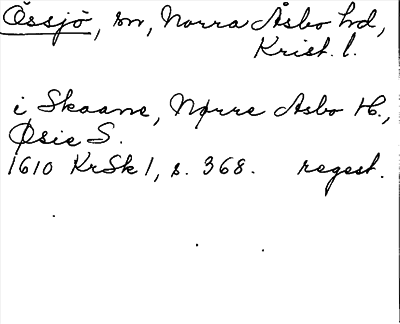 Össjö, sn, Norra Åsbo hd,
Krist. l.
i Skaane, Nørre Asbo H.,
Øsie S.
1610 KrSk 1, s. 368. regest.